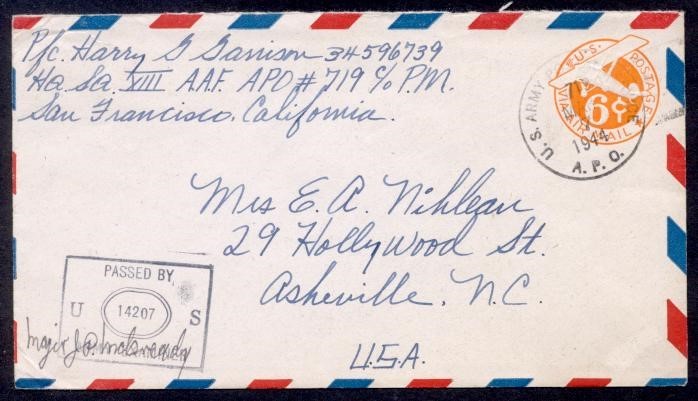 Pfc. Harry G Garrison 34596739
Hq Sq VIII A.A.F. APO # 719 c/o P.M.
San Francisco, California.
U.S. ARMY
1944
A. P. O.
U.S. POSTAGE
6¢
VIA AIR MAIL
Mrs E. A. Nihlean
29 Hollywood St.
Asheville, N.C.
U.S.A.
PASSED BY
U 14207 S